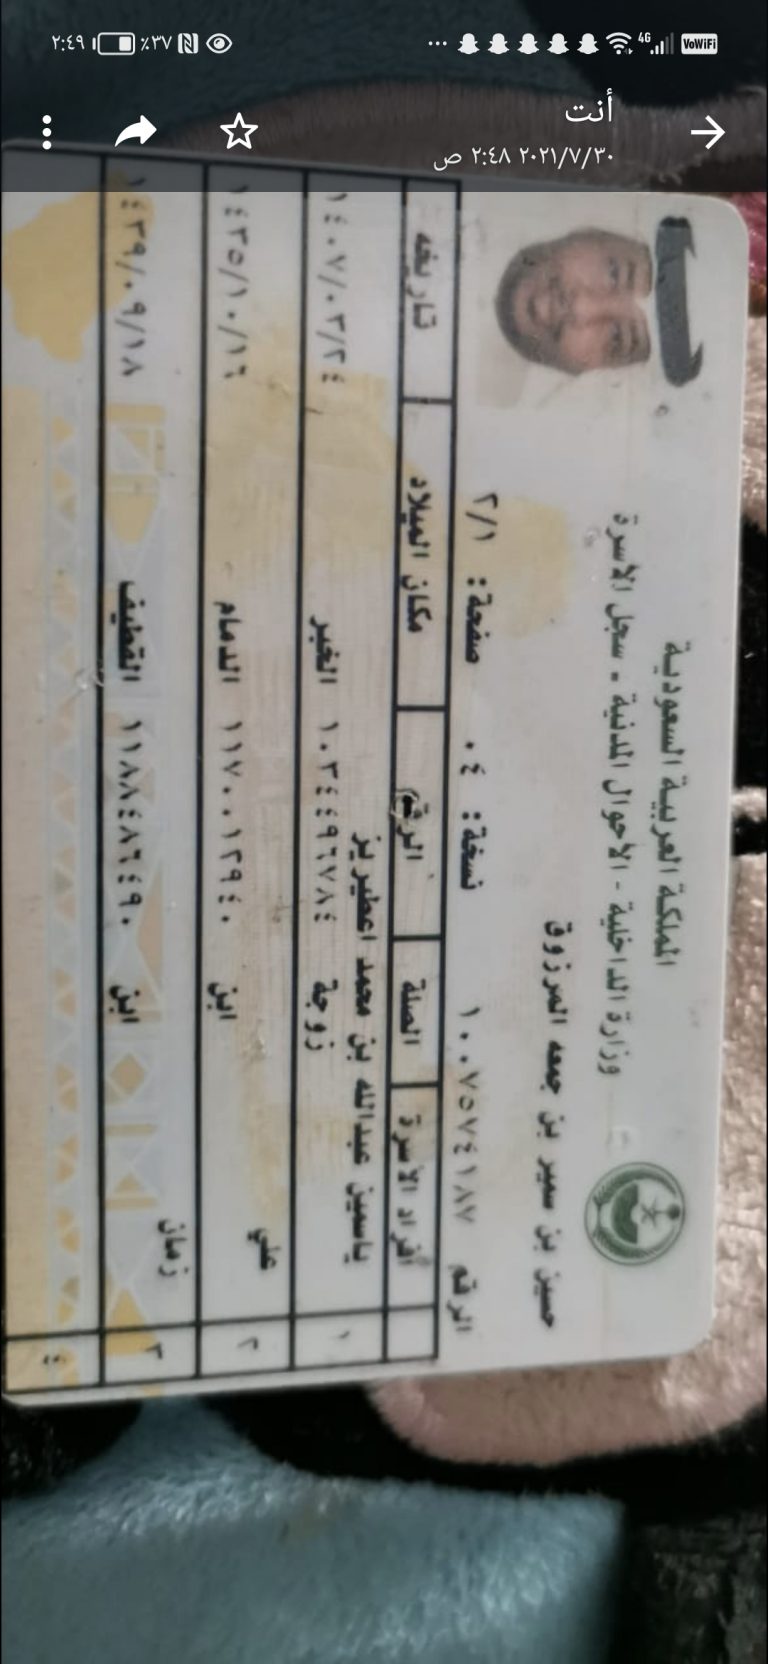 ٢:٤٩ ٪٣٧ 4G VoWiFi
أنت
٢٠٢١/٧/٣٠ ٢:٤٨ ص
المملكة العربية السعودية
وزارة الداخلية - الأحوال المدنية - سجل الأسرة
حسين بن سمير بن جمعه المرزوق
الرقم ١٠٠٧٥٧٤١٨٧ نسخة: ٠٤ صفحة: ٢/١
أفراد الأسرة الصلة الرقم مكان الميلاد تاريخه
١ ياسمين عبدالله بن محمد اعطيريز
زوجة ١٠٣٤٤٩٦٧٨٤ الخبر ١٤٠٧/٠٣/٢٤
٢ علي ابن ١١٧٠٠١٢٩٤٠ الدمام ١٤٣٥/١٠/١٦
٣ زمان ابن ١١٨٨٤٨٦٤٩٠ القطيف ١٤٣٩/٠٩/١٨
٤